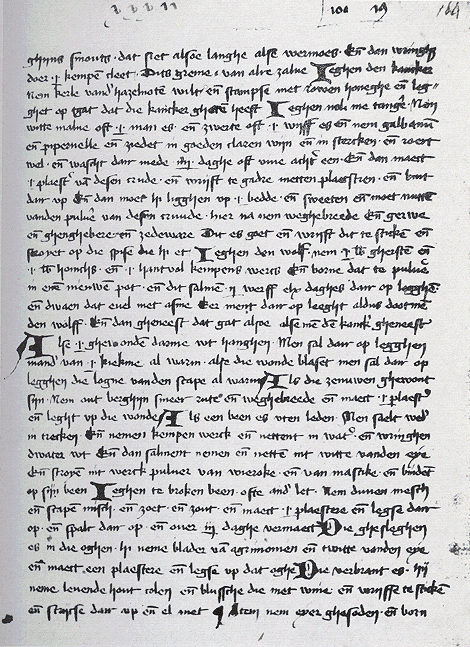 ghijns smouts · dat siet alsoe langhe alse wermoes · En̄ dan wringh
doer · i · kempē cleet · Dits grene · van alre zalue Ieghen den kancker
Nem kerle vand' haselnote wilt en̄ stampse met rowen honeghe en̄ leg
ghet op tgat dat die kancker gheten heeft Ieghen noli me tange · Nem
witte malue oft · i · man es · en̄ zwerte oft · i · wijff es en̄ nem galbanū
en̄ pipenelle en̄ ziedet in goeden claren wijn en̄ in stercken · en̄ roert
wel · en̄ wascht daer mede · iiij · daghe oft viue acht' een · En̄ dan maect
· i · plaest' vā desen crude · en̄ wrijft te gadre metten plaestren · en̄ bint
daer vp En̄ dan moet hi ligghen vp · i · bedde · en̄ sweeten en̄ moet nutten
vanden puluē van desen cruude · hier na nem weghebreede En̄ gerwe
en̄ ghenghebere · en̄ zedeware Dit es goet en̄ wrijft dit te sticken en̄
stroyet op die spise die hi et Ieghen den wolf nem · i · lb ghersten en̄
· i · lb honichs · en̄ · i · hantvol kempens wercs En̄ borne dat te puluē
in enē nieuwen pot · en̄ dit salmē · ij · werff elx daghes daer op legghē
en̄ dwaen dat euel met asine Eer ment daer op leeght aldus doetmē
den wolff · En̄ dan gheneest dat gat alsoe alse mē dē kanck' gheneest
Alse · i · ghewonden darme wt hanghen · Men sal daer op legghen
mand van · i · kiekine al warm · alse die wonde blaset men sal daer op
legghen die logne vanden scape al warm Als die zenuwen ghewont
sijn · Nem out berghijn smeer rute en̄ weghebreede en̄ maect · i · plaest'
en̄ leght vp die wonde Als een been es vten leden · Men saelt wed'
in trecken · En̄ nemen kempen werck en̄ nettent in wat' · en̄ wringhen
dwater wt En̄ dan salment nemen en̄ netten int witte vanden eye
En̄ stroyē int werck puluer van wieroke · en̄ van mastike · en̄ bindet
op sijn been Ieghen te broken been · ofte and' let · Nem duuen mesch
en̄ scapē misch · en̄ zoet en̄ zout · en̄ maect · i · plaestere en̄ legse daer
op · en̄ spalt daer op · en̄ ouer · iij · daghe vermaect Die gheslegħen
es in die oghen · hi neme blader vā agrimonien en̄ twitte vanden eye
en̄ maect een plaestere en̄ legse vp dat oghe Die verbrant es · Hij
neme leuende hout colen en̄ blussche die met wine · en̄ wrijfse te sticken
en̄ strijcse daer vp en̄ el met ¶ Item nem eyer ghesoden · en̄ born